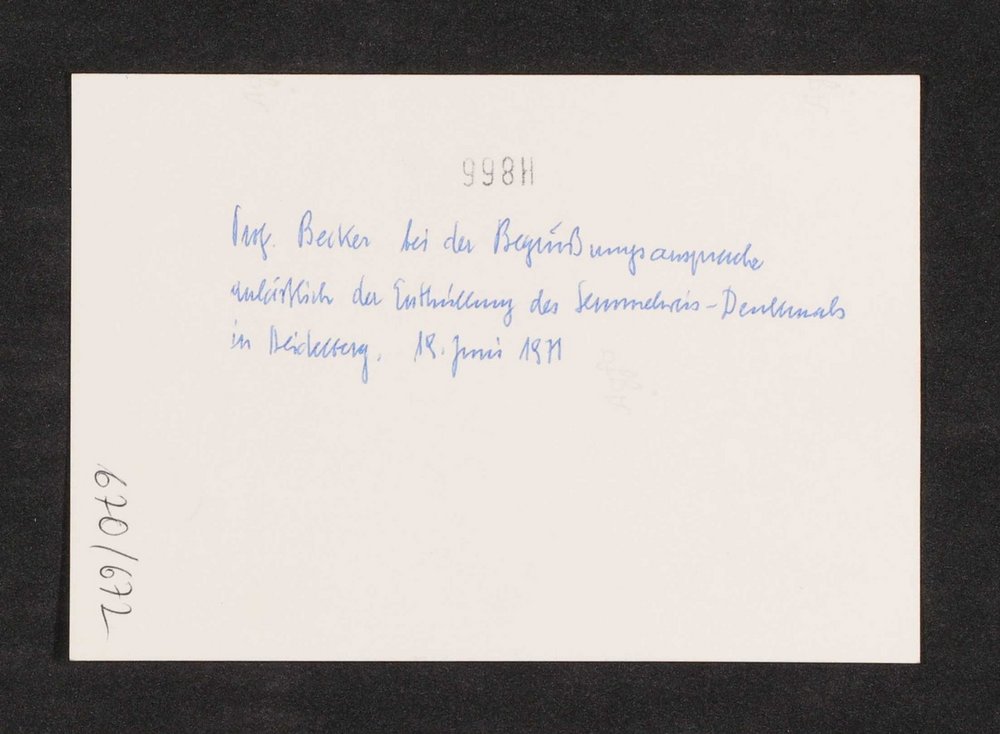 998H
Prof. Becker bei der Begrüßungsansprache
anläßlich der Enthüllung des Semmelweis-Denkmals
in Heidelberg, 19. Juni 1971
670/672